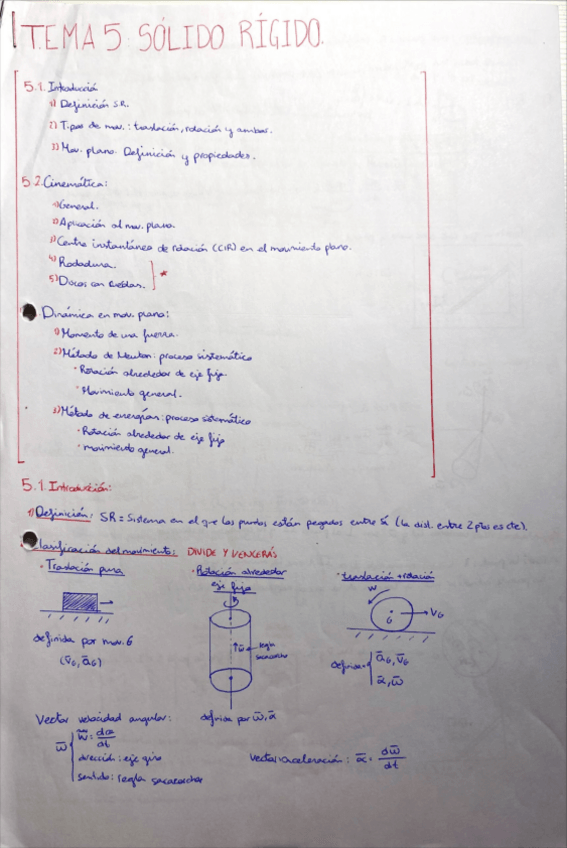 TEMA 5: SÓLIDO RÍGIDO.
5.1. Introducció
1) Definición S.R.
2) Tipos de mov.: traslación, rotación y ambar.
3) Mov. plano. Definición y propiedades.
5.2. Cinemática:
1) General.
2) Aplicación al mov. plano.
3) Centro instantáneo de rotación (CIR) en el movimiento plano.
4) Rodadura.
5) Discos con *
Dinámica en mov. plano:
1) Momento de una fuerza.
2) Método de Newton: proceso sistemático
• Rotación alrededor de eje fijo.
• Movimiento general.
3) Método de energías: proceso sistemático
• Rotación alrededor de eje fijo
• movimiento general.
5.1. Introducción:
1) Definición: SR = Sistema en el que los puntos están pegados entre sí (la dist. entre 2 ptos es cte).
Clasificación del movimiento: DIVIDE Y VENCERÁS
• Traslación pura
• Rotación alrededor eje fijo
• traslación + rotación
w
G
V_G
definida por mov. G
(v̄_G, ā_G)
w̄ regla sacacorcho
definida ā_G, v̄_G
ᾱ, ω̄
Vector velocidad angular:
definida por ω̄, ᾱ
ω̄ w̄ = dα/dt
dirección: eje giro
sentido: regla sacacorchos
Vector aceleración: ᾱ = dω̄/dt